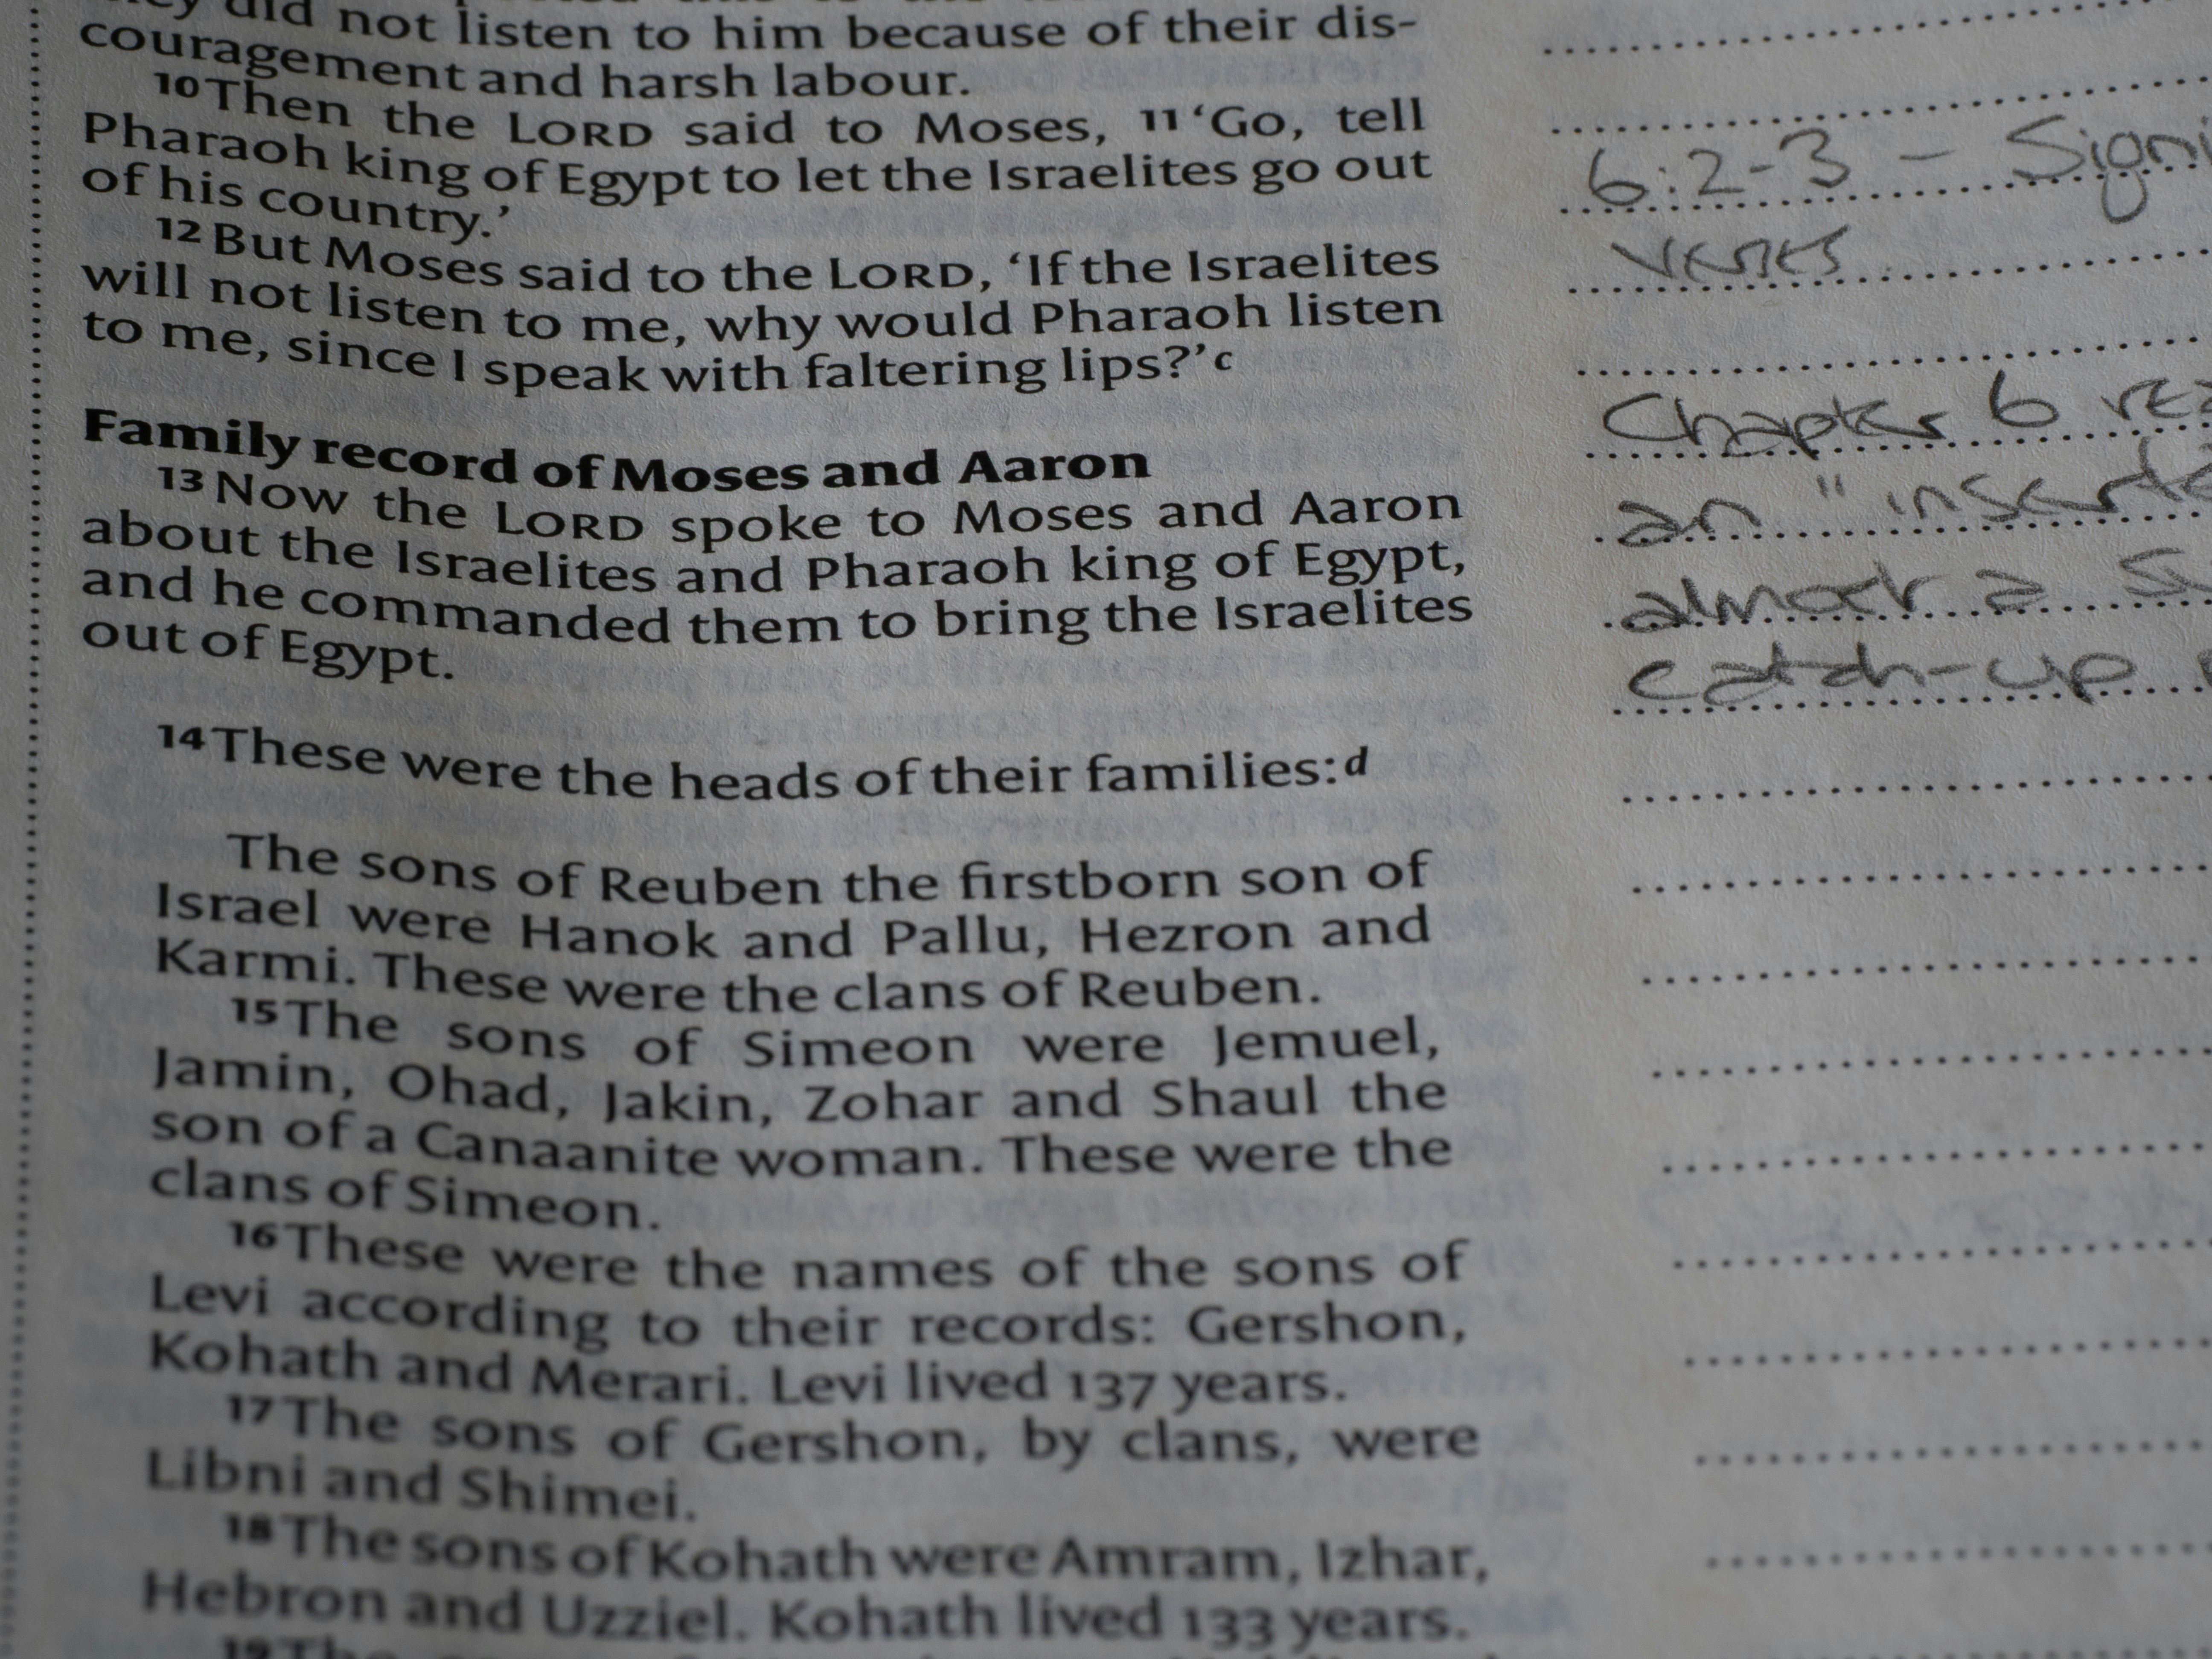 did not listen to him because of their dis-
couragement and harsh labour.
10 Then the LORD said to Moses, 11 ‘Go, tell
Pharaoh king of Egypt to let the Israelites go out
of his country.’
12 But Moses said to the LORD, ‘If the Israelites
will not listen to me, why would Pharaoh listen
to me, since I speak with faltering lips?’ c
Family record of Moses and Aaron
13 Now the LORD spoke to Moses and Aaron
about the Israelites and Pharaoh king of Egypt,
and he commanded them to bring the Israelites
out of Egypt.
14 These were the heads of their families: d
The sons of Reuben the firstborn son of
Israel were Hanok and Pallu, Hezron and
Karmi. These were the clans of Reuben.
15 The sons of Simeon were Jemuel,
Jamin, Ohad, Jakin, Zohar and Shaul the
son of a Canaanite woman. These were the
clans of Simeon.
16 These were the names of the sons of
Levi according to their records: Gershon,
Kohath and Merari. Levi lived 137 years.
17 The sons of Gershon, by clans, were
Libni and Shimei.
18 The sons of Kohath were Amram, Izhar,
Hebron and Uzziel. Kohath lived 133 years.
6:2-3 - Signi
verses
Chapter 6 rea
an "inserte
almost a
catch-up